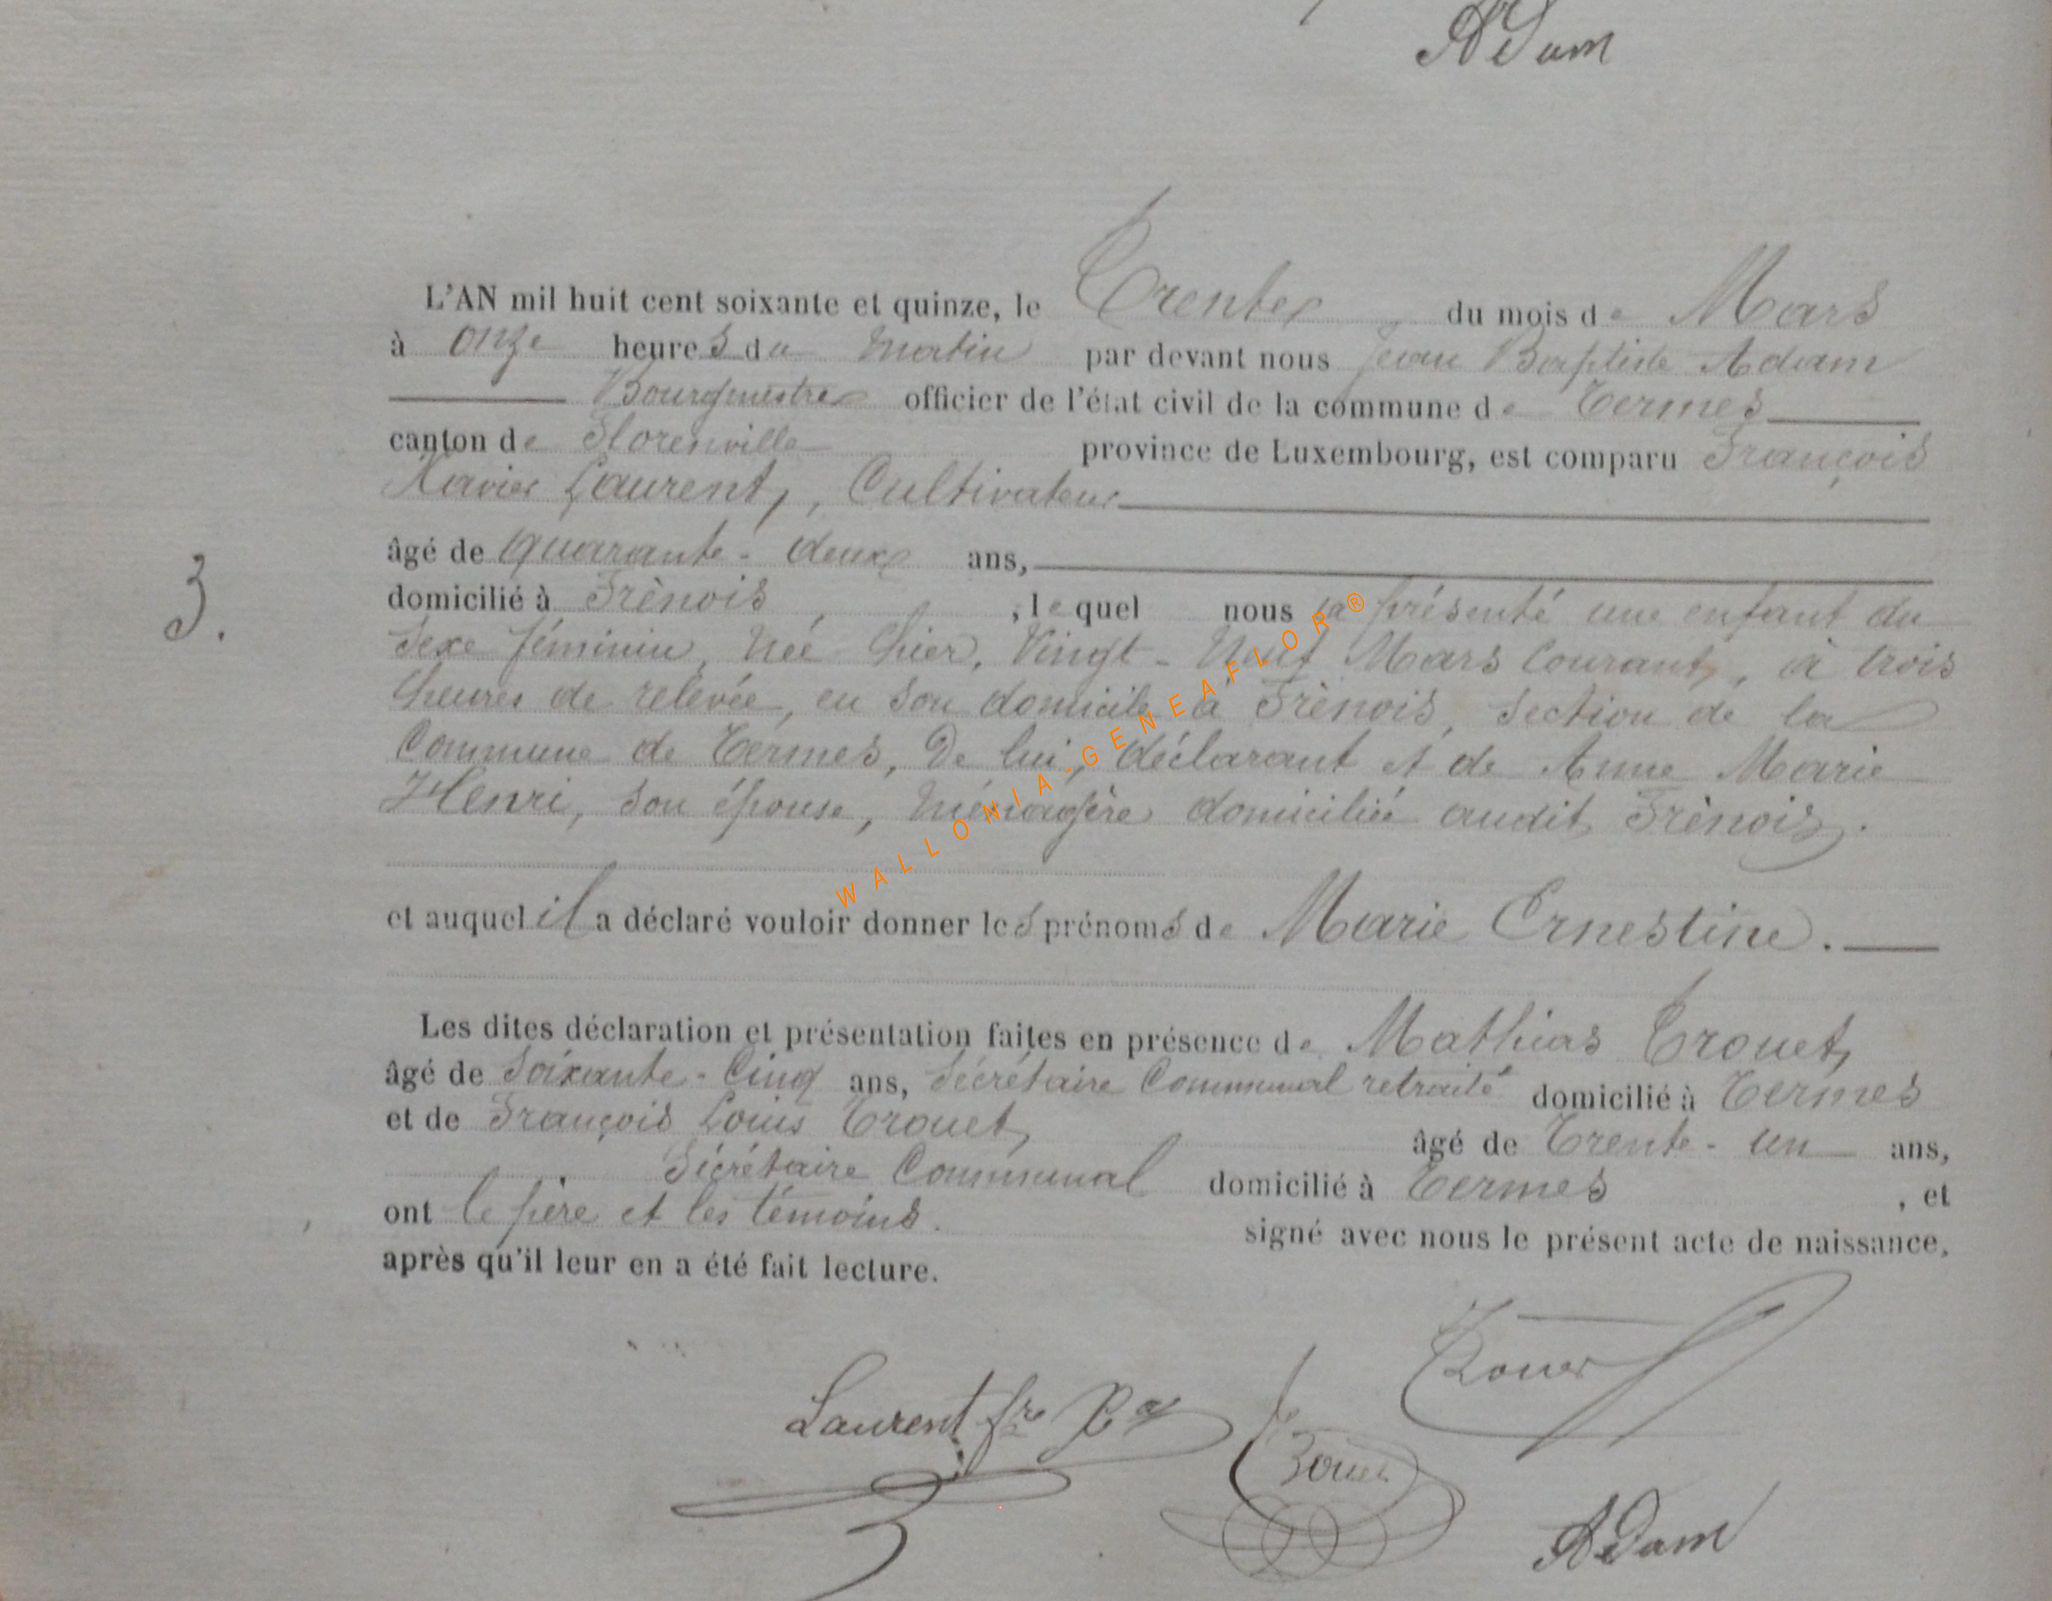 Adam
L'AN mil huit cent soixante et quinze, le Trente du mois de Mars
à onze heures du matin par devant nous Jean Baptiste Adam
Bourgmestre officier de l'état civil de la commune de Termes
canton de Florenville province de Luxembourg, est comparu François
Xavier Laurent, Cultivateur
âgé de quarante-deux ans,
domicilié à Frènois, lequel nous a présenté une enfant du
sexe féminin, née hier, Vingt-Neuf Mars Courant, à trois
heures de relevée, en son domicile à Frènois, section de la
Commune de Termes, De lui, déclarant et de Anne Marie
Henri, son épouse, ménagère domiciliée audit Frènois.
3.
et auquel il a déclaré vouloir donner les prénoms de Marie Ernestine.
Les dites déclaration et présentation faites en présence de Mathias Trouet,
âgé de Soixante-Cinq ans, Sécrétaire Communal retraité domicilié à Termes
et de François Louis Trouet, âgé de Trente-un ans,
Sécrétaire Communal domicilié à Termes, et
ont le père et les témoins. signé avec nous le présent acte de naissance,
après qu'il leur en a été fait lecture.
Trouet
Laurent frs
Trouet
Adam
WALLONIA-GENEAFLOR®